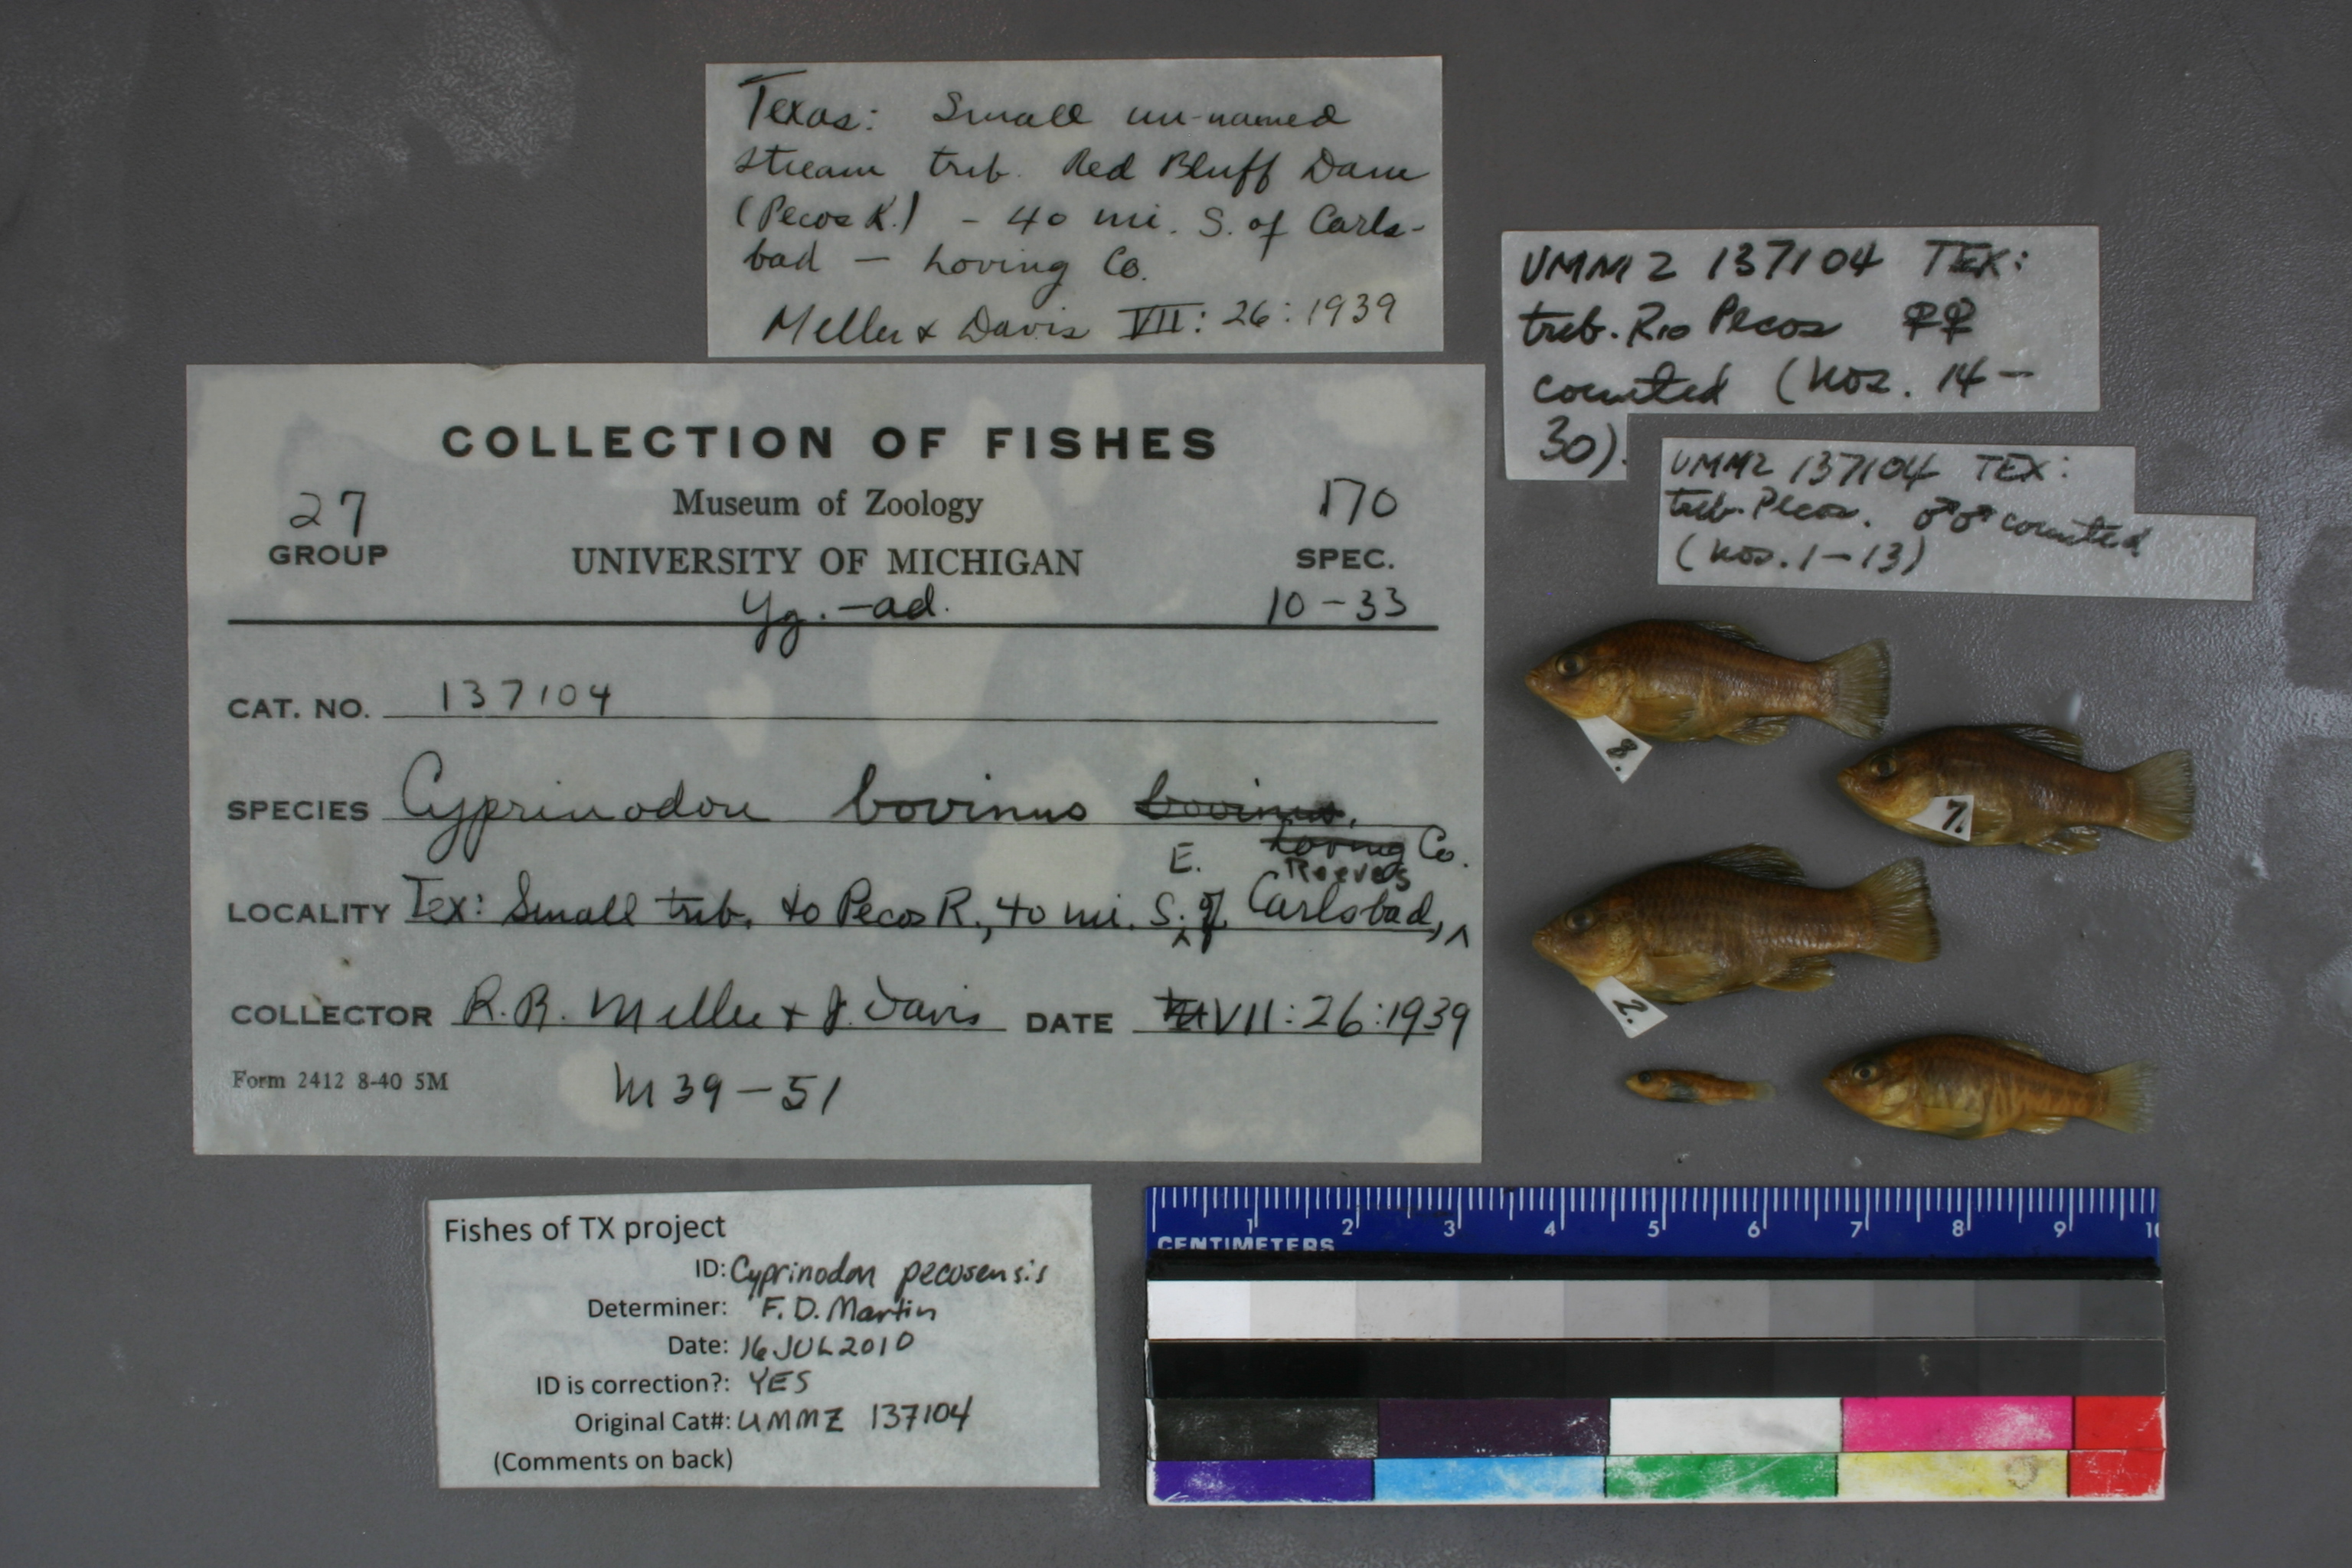 Texas: Small un-named
stream trib. Red Bluff Dam
(Pecos R.) - 40 mi. S. of Carls-
bad — Loving Co.
Miller & Davis VII: 26: 1939
UMMZ 137104 TEX:
trib. Rio Pecos ♀♀
counted (nos. 14-
30).
UMMZ 137104 TEX:
trib. Pecos. ♂♂ counted
(nos. 1-13)
COLLECTION OF FISHES
27
GROUP
Museum of Zoology
UNIVERSITY OF MICHIGAN
170
SPEC.
Yg.-ad.
10-33
CAT. NO. 137104
SPECIES Cyprinodon bovinus bovinus.
E. Loving Co.
Reeves
LOCALITY Tex: Small trib. to Pecos R., 40 mi. S. of Carlsbad,
COLLECTOR R.R. Miller & J. Davis DATE VII:26:1939
Form 2412 8-40 5M
M39-51
8.
7.
2.
Fishes of TX project
ID: Cyprinodon pecosensis
Determiner: F.D. Martin
Date: 16 JUL 2010
ID is correction?: YES
Original Cat#: UMMZ 137104
(Comments on back)
1 2 3 4 5 6 7 8 9 10
CENTIMETERS